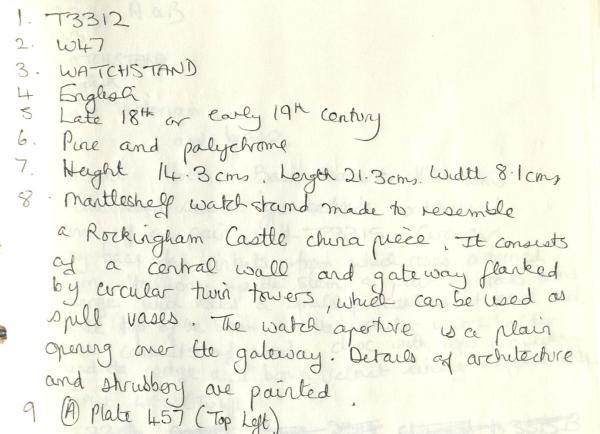 1. T3312
2. W47
3. WATCHSTAND
4 English
5 Late 18th or early 19th century
6. Pine and polychrome
7. Height 14.3cms. Length 21.3cms. Width 8.1cms
8. Mantleshelf watchstand made to resemble
a Rockingham Castle china piece. It consists
of a central wall and gateway flanked
by circular twin towers, which can be used as
spill vases. The watch aperture is a plain
opening over the gateway. Details of architecture
and shrubbery are painted.
9 (A) Plate 457 (Top Left)